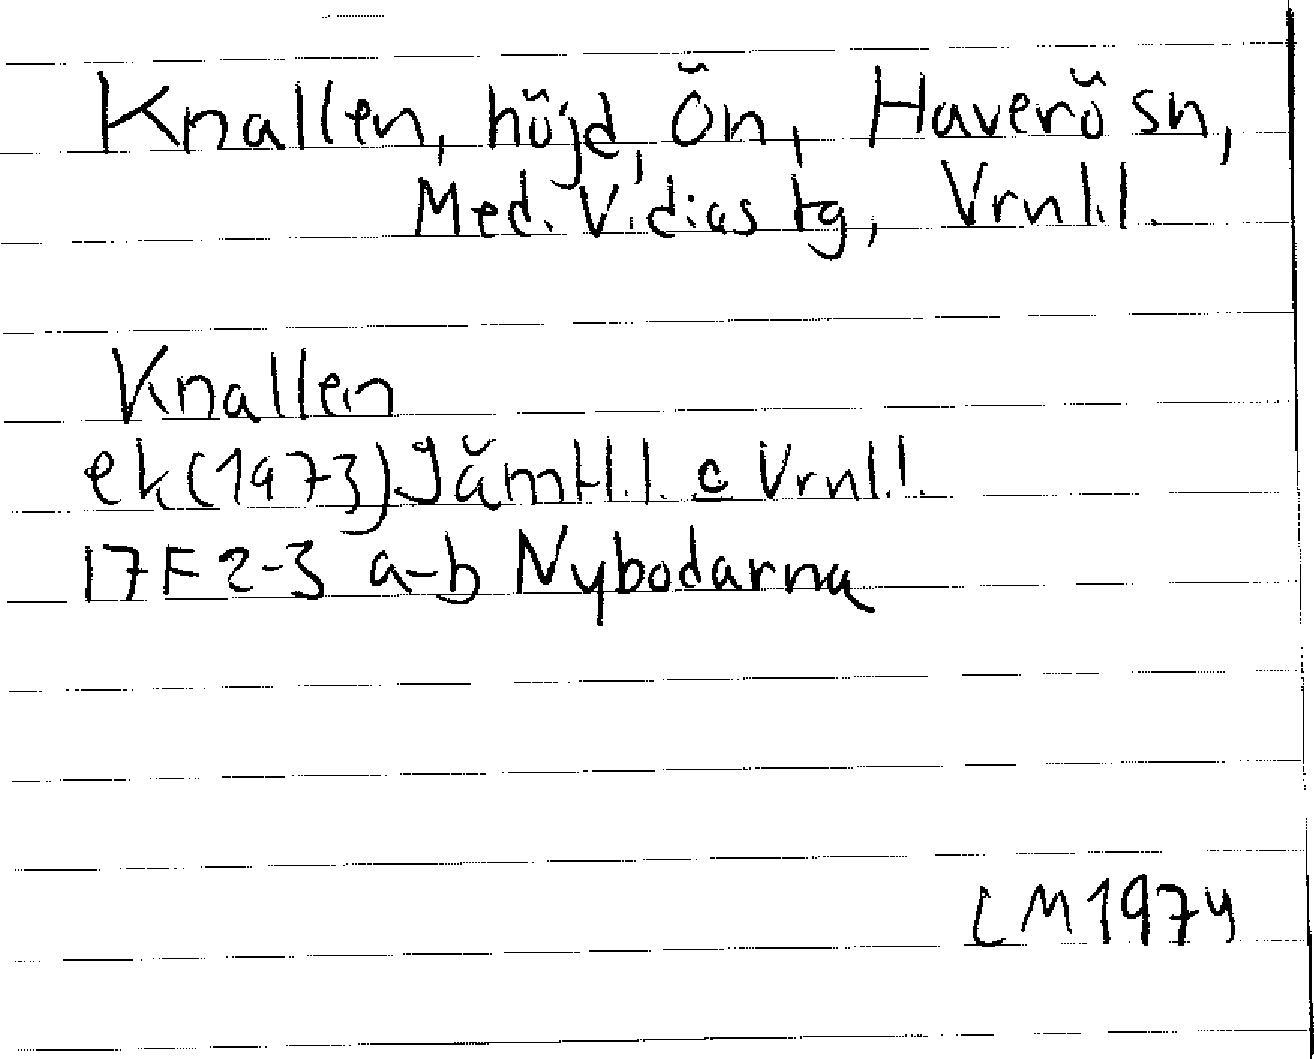 Knallen, höjd, Ön, Haverö sn,
Med. V. dias tg, Vrnl.l.
Knallen
ek(1973)Jämtl.l. c Vrnl.l.
17F 2-3 a-b Nybodarna
LM 1974